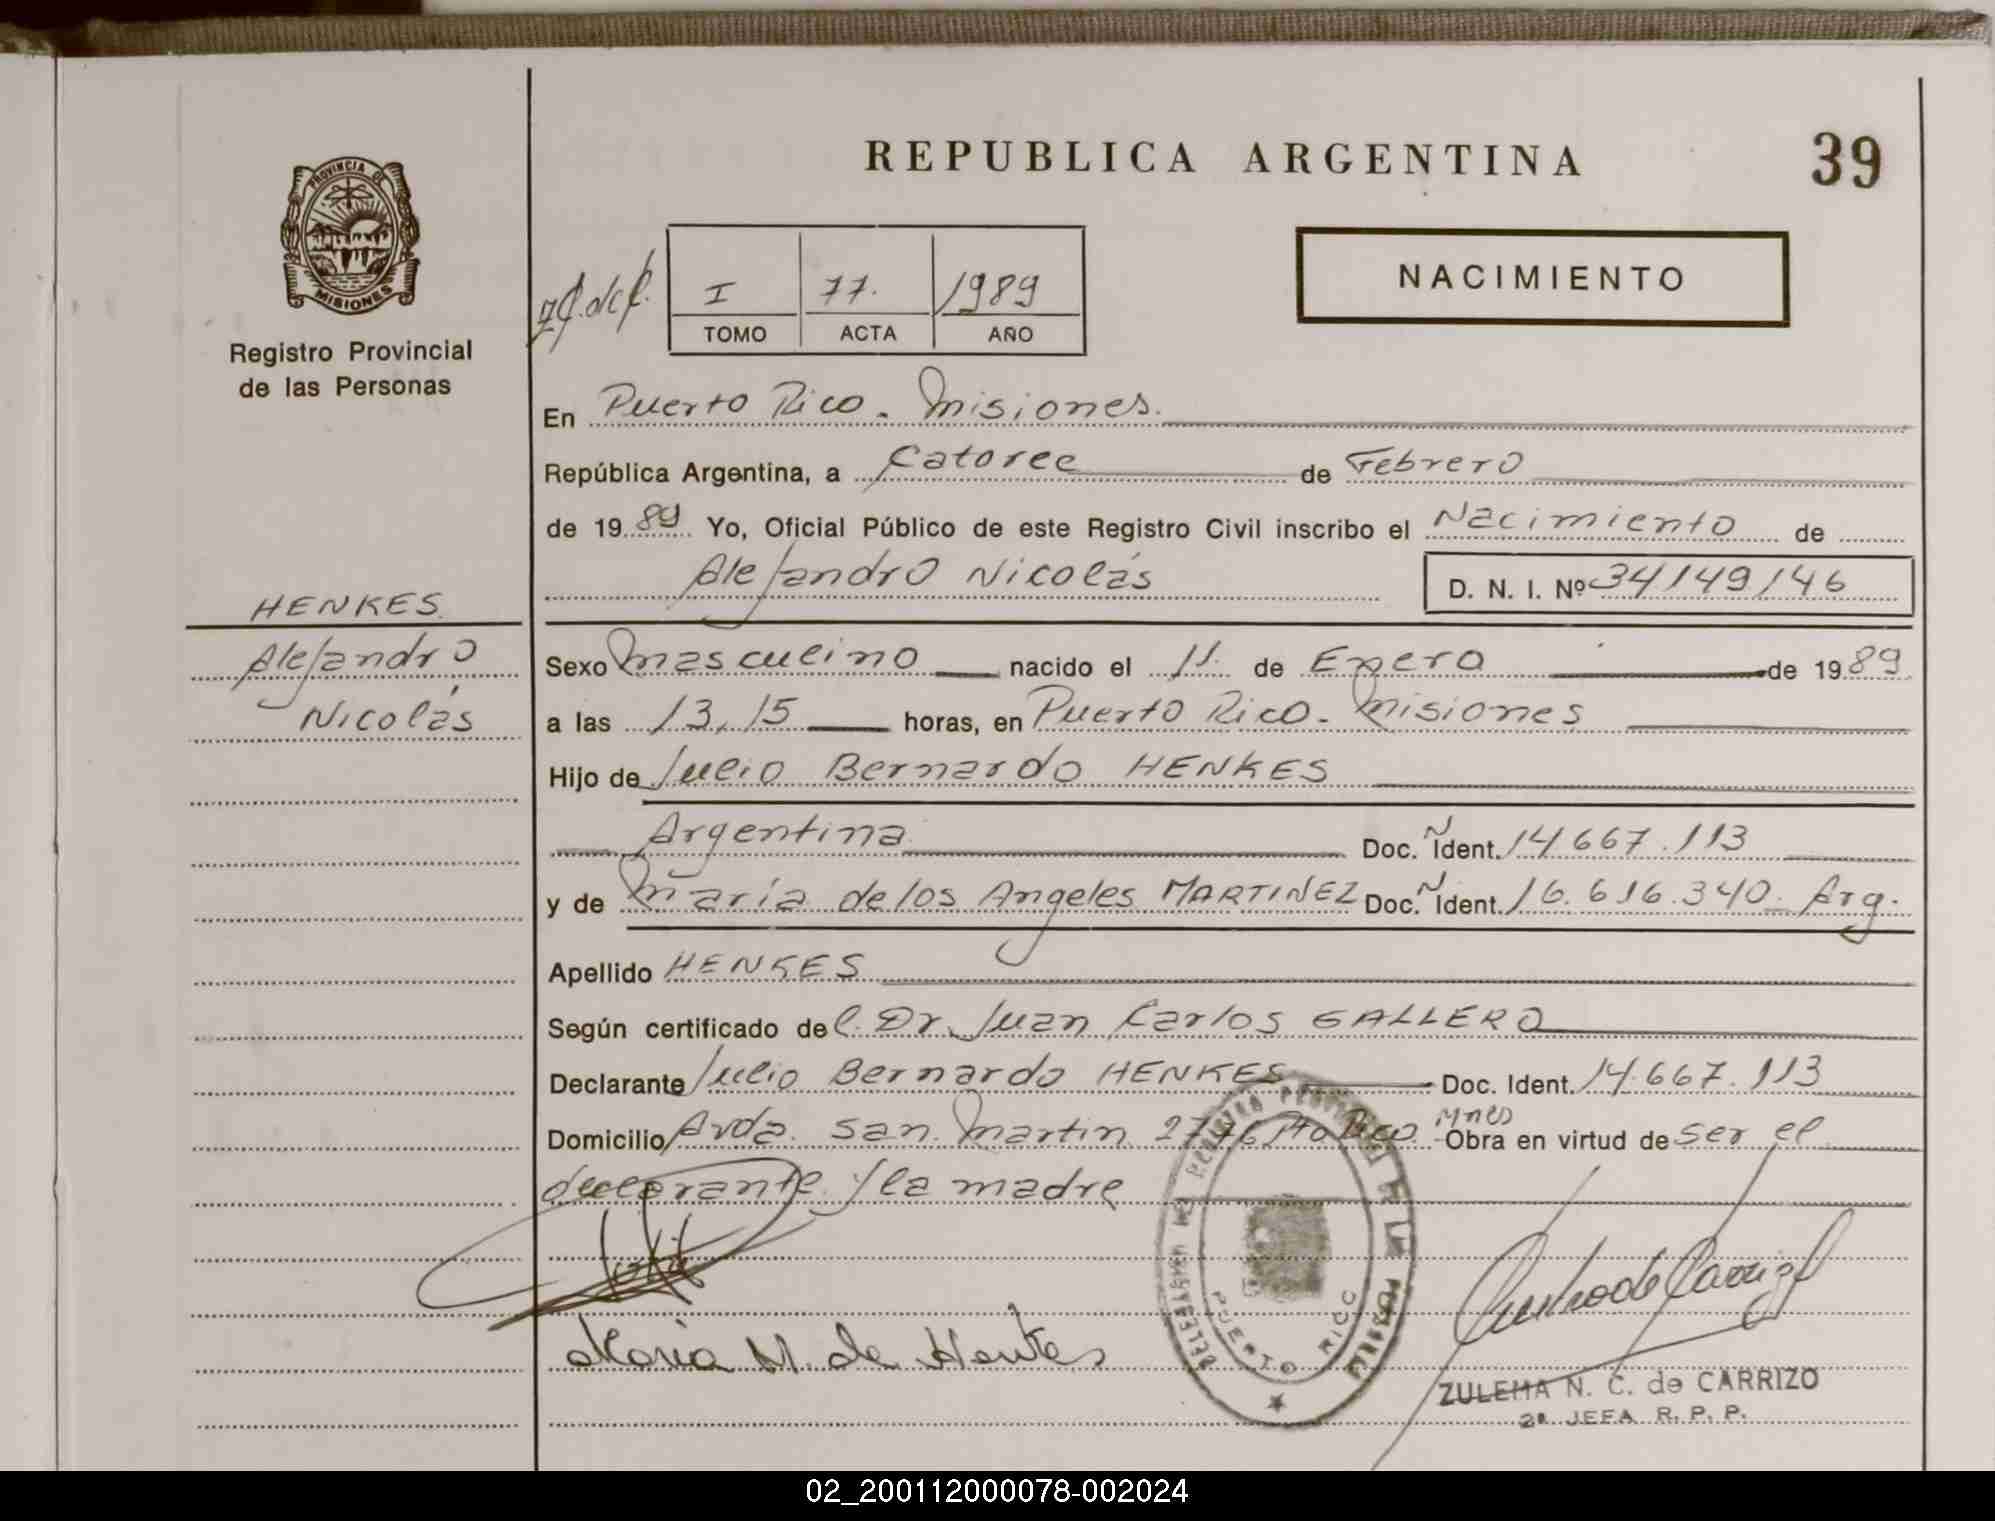 REPUBLICA ARGENTINA
39
PROVINCIA DE
MISIONES
Registro Provincial
de las Personas
I 77. 1989
TOMO ACTA AÑO
NACIMIENTO
En Puerto Rico - Misiones.
República Argentina, a Catorce de Febrero
de 1989 Yo, Oficial Público de este Registro Civil inscribo el Nacimiento de
Alejandro Nicolás
D. N. I. Nº 34/149/146
HENKES
Alejandro
Nicolás
Sexo Masculino nacido el 11. de Enero de 1989
a las 13,15 horas, en Puerto Rico - Misiones
Hijo de Julio Bernardo HENKES
Argentina Doc. Ident. 14.667.113
y de María de los Angeles MARTINEZ Doc. Ident. 16.616.340 - Arg.
Apellido HENKES
Según certificado del Dr. Juan Carlos GALLERO
Declarante Julio Bernardo HENKES Doc. Ident. 14.667.113
Domicilio Avda. San Martin 2776 Pto Rico - Mnes Obra en virtud de ser el
declarante y la madre
María M. de Henkes
DELEGACION DEL REGISTRO PROVINCIAL DE LAS PERSONAS
PUERTO RICO
ZULEMA N. C. de CARRIZO
2ª JEFA R. P. P.
02_200112000078-002024